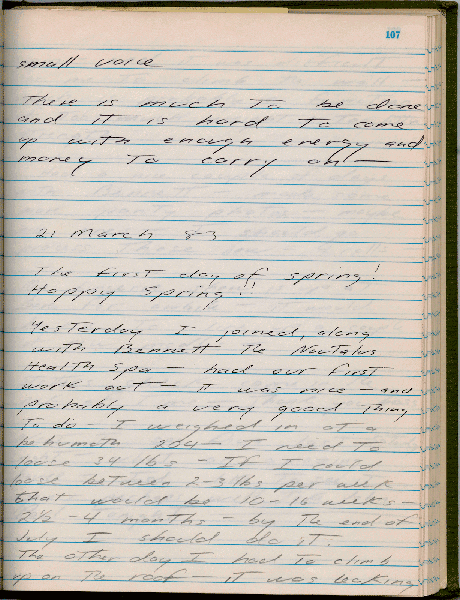 107
small voice
There is much to be done
and it is hard to come
up with enough energy and
money to carry on —
21 March 83
The first day of spring!
Happy Spring!!
Yesterday I joined, along
with Bennett the Nautalus
Health Spa — had our first
work out — it was nice — and
probably a very good thing
to do — I weighed in at a
behumoth 204 — I need to
loose 34 lbs — If I could
loose between 2-3 lbs per week
that would be 10-16 weeks —
2½ - 4 months — by the end of
July I should do it.
The other day I had to climb
up on the roof — it was leaking